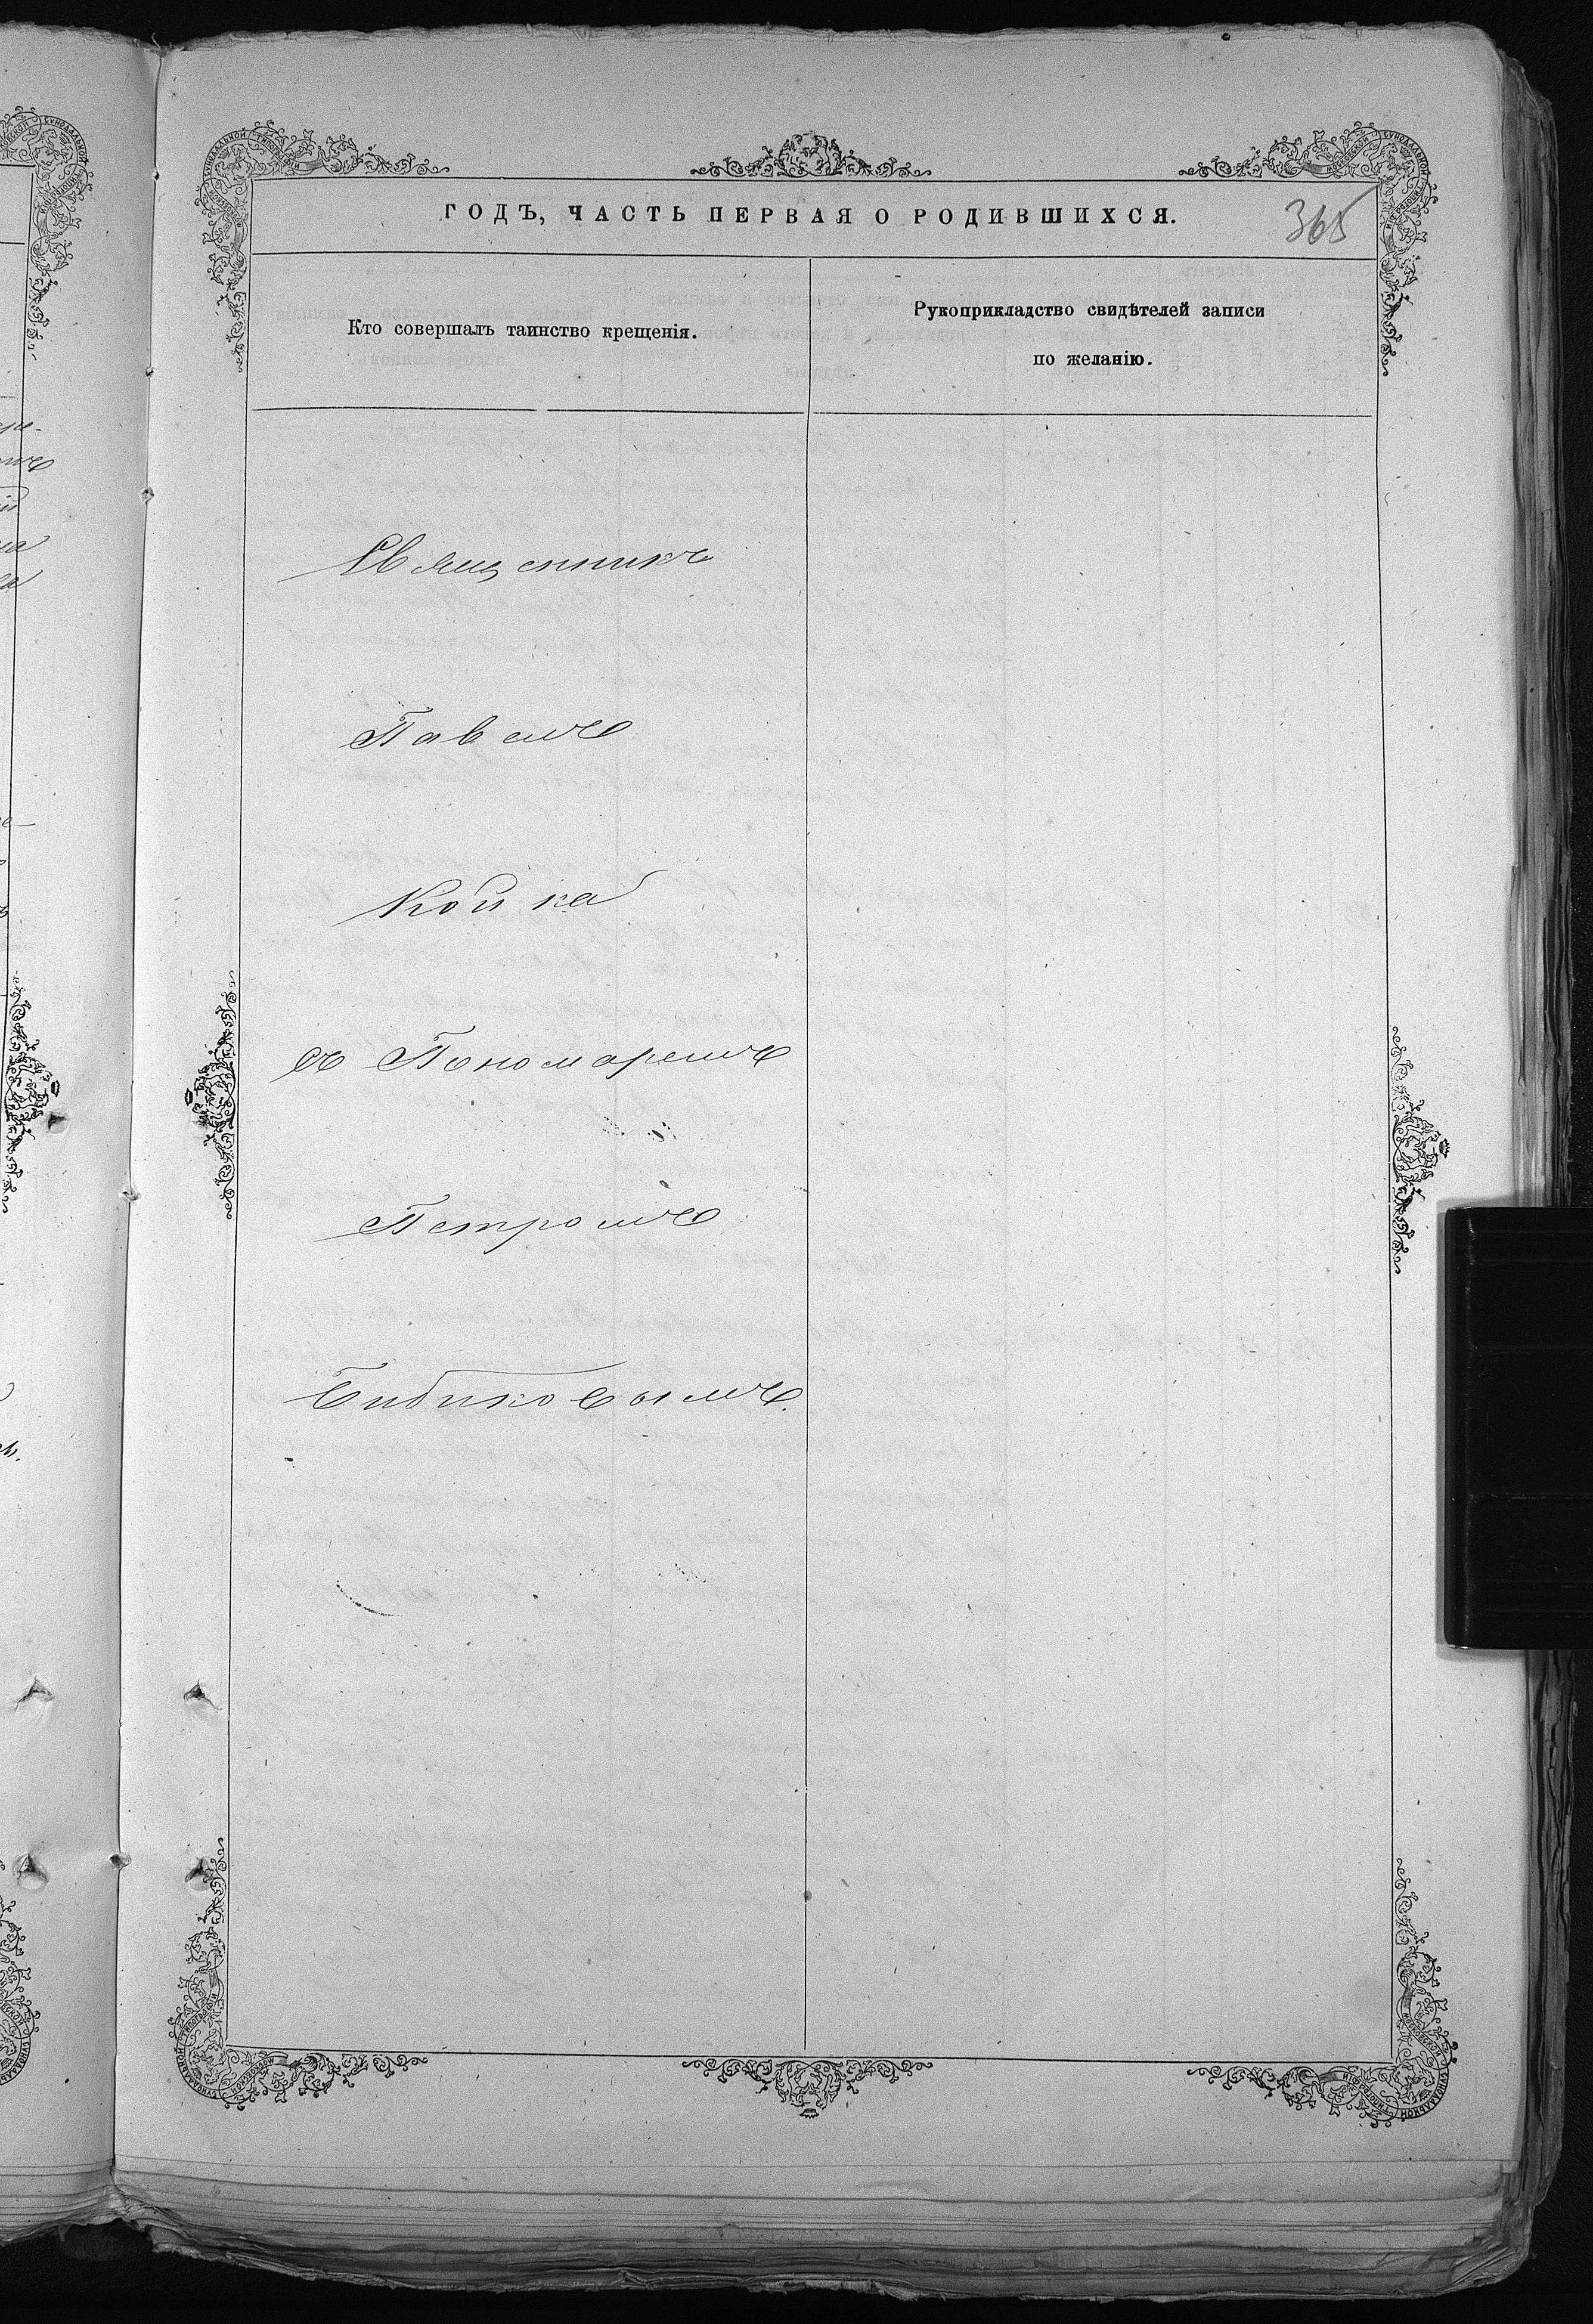 ГОДЪ, ЧАСТЬ ПЕРВАЯ О РОДИВШИХСЯ.
365
Кто совершалъ таинство крещенія.
Рукоприкладство свидѣтелей записи
по желанію.
Священникъ
Павелъ
Койка
съ Пономаремъ
Петромъ
Бибиковымъ.